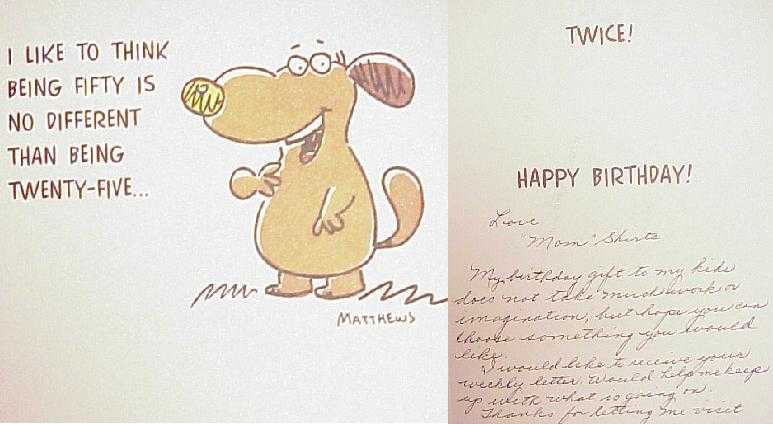 I LIKE TO THINK
BEING FIFTY IS
NO DIFFERENT
THAN BEING
TWENTY-FIVE...
MATTHEWS
TWICE!
HAPPY BIRTHDAY!
Love
"Mom" Shurts
My birthday gift to my kids
does not take much work or
imagination, but hope you can
choose something you would
like.
I would like to receive your
weekly letter. Would help me keep
up with what is going on.
Thanks for letting me visit